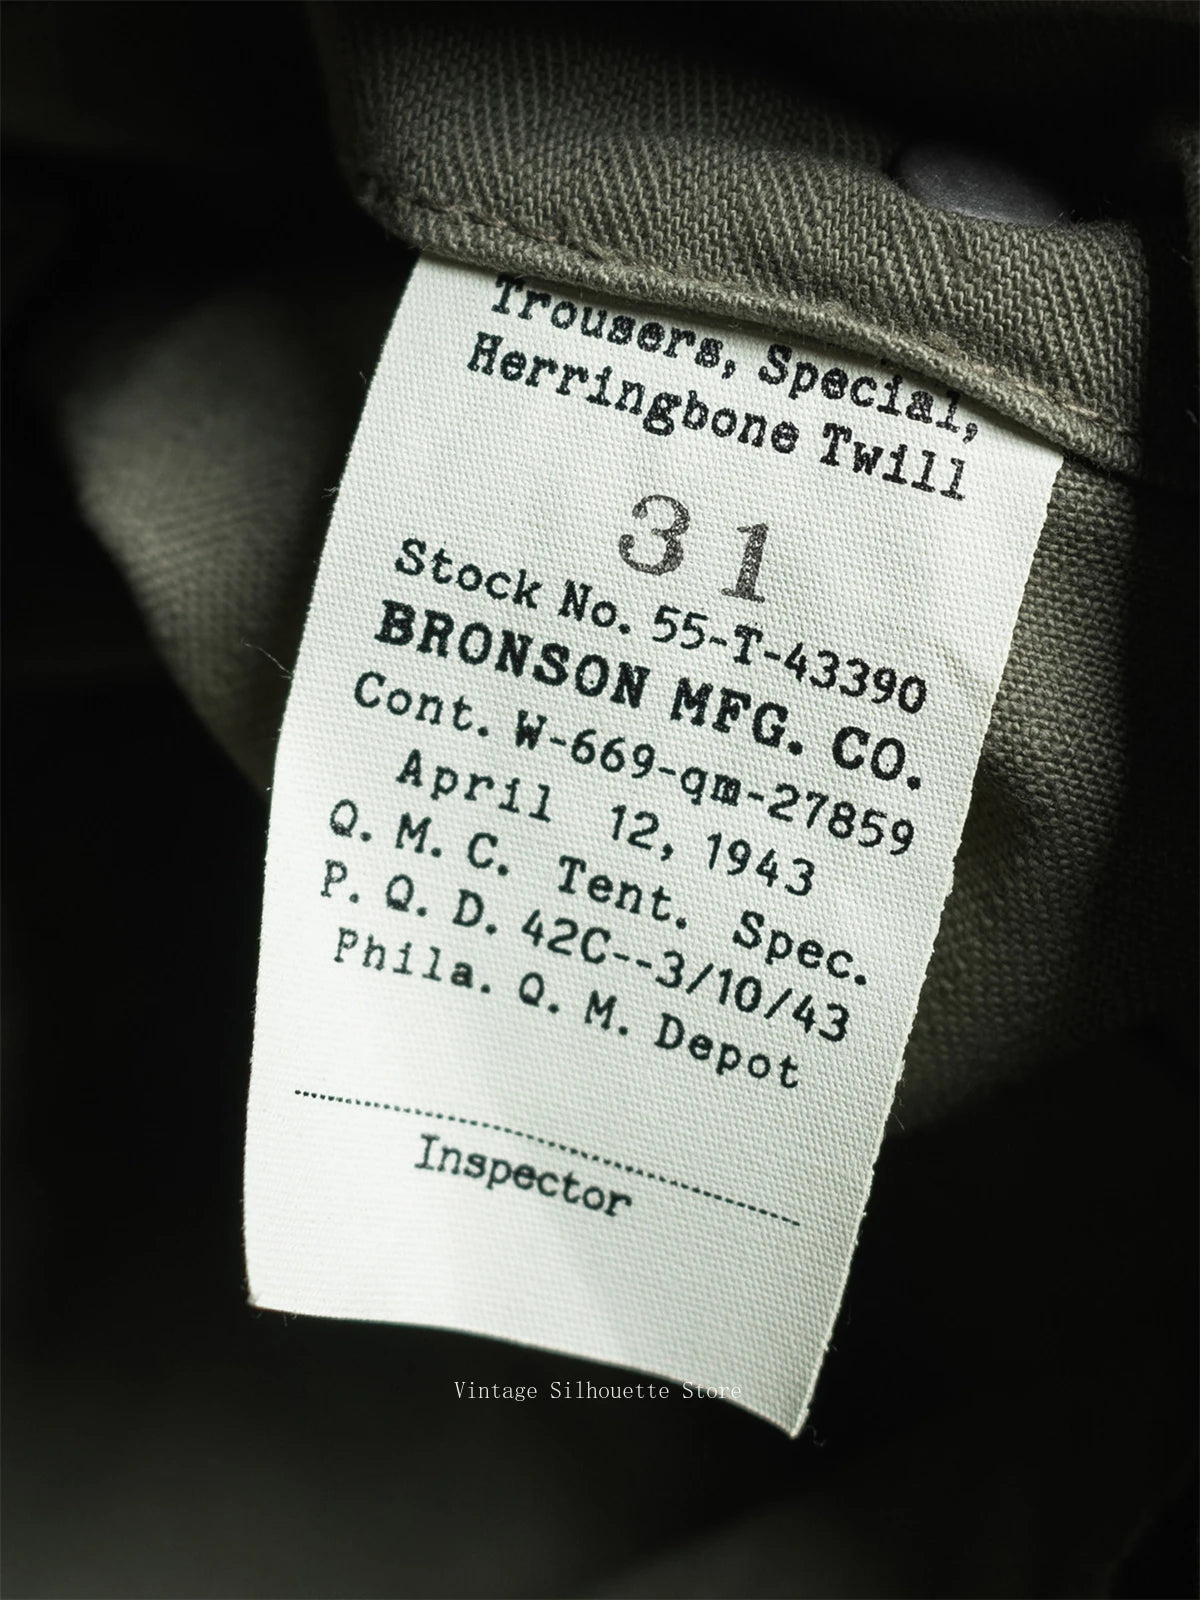 Trousers, Special,
Herringbone Twill
31
Stock No. 55-T-43390
BRONSON MFG. CO.
Cont. W-669-qm-27859
April 12, 1943
Q. M. C. Tent. Spec.
P. Q. D. 42C--3/10/43
Phila. Q. M. Depot
Inspector
Vintage Silhouette Store